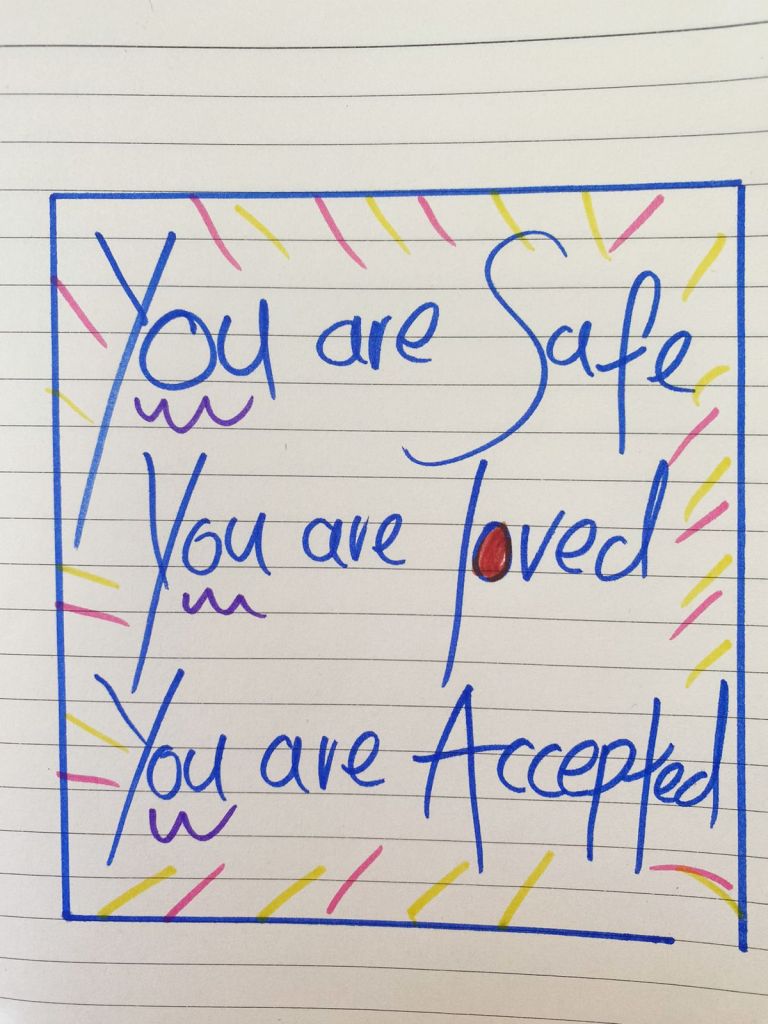 You are Safe
You are loved
You are Accepted